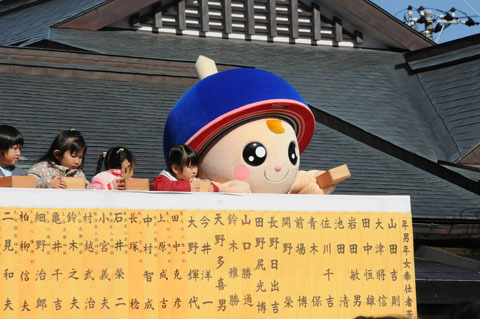 年男年女奉仕者芳
山田吉則
大津將
田中恒雄
岩田敏男
池田清
佐川千吉
青木保
前場榮
関野
長野日出吉
田野尻光博
山口勝通
鈴木雅勝
天野多喜男
今井洋一
大野輝代
田中克彦
上原成美
中村智成
長塚
石井栄二
小宮義夫
村越武治
鈴木之夫
亀井千吉
細野治郎
柏柳信夫
二見和夫